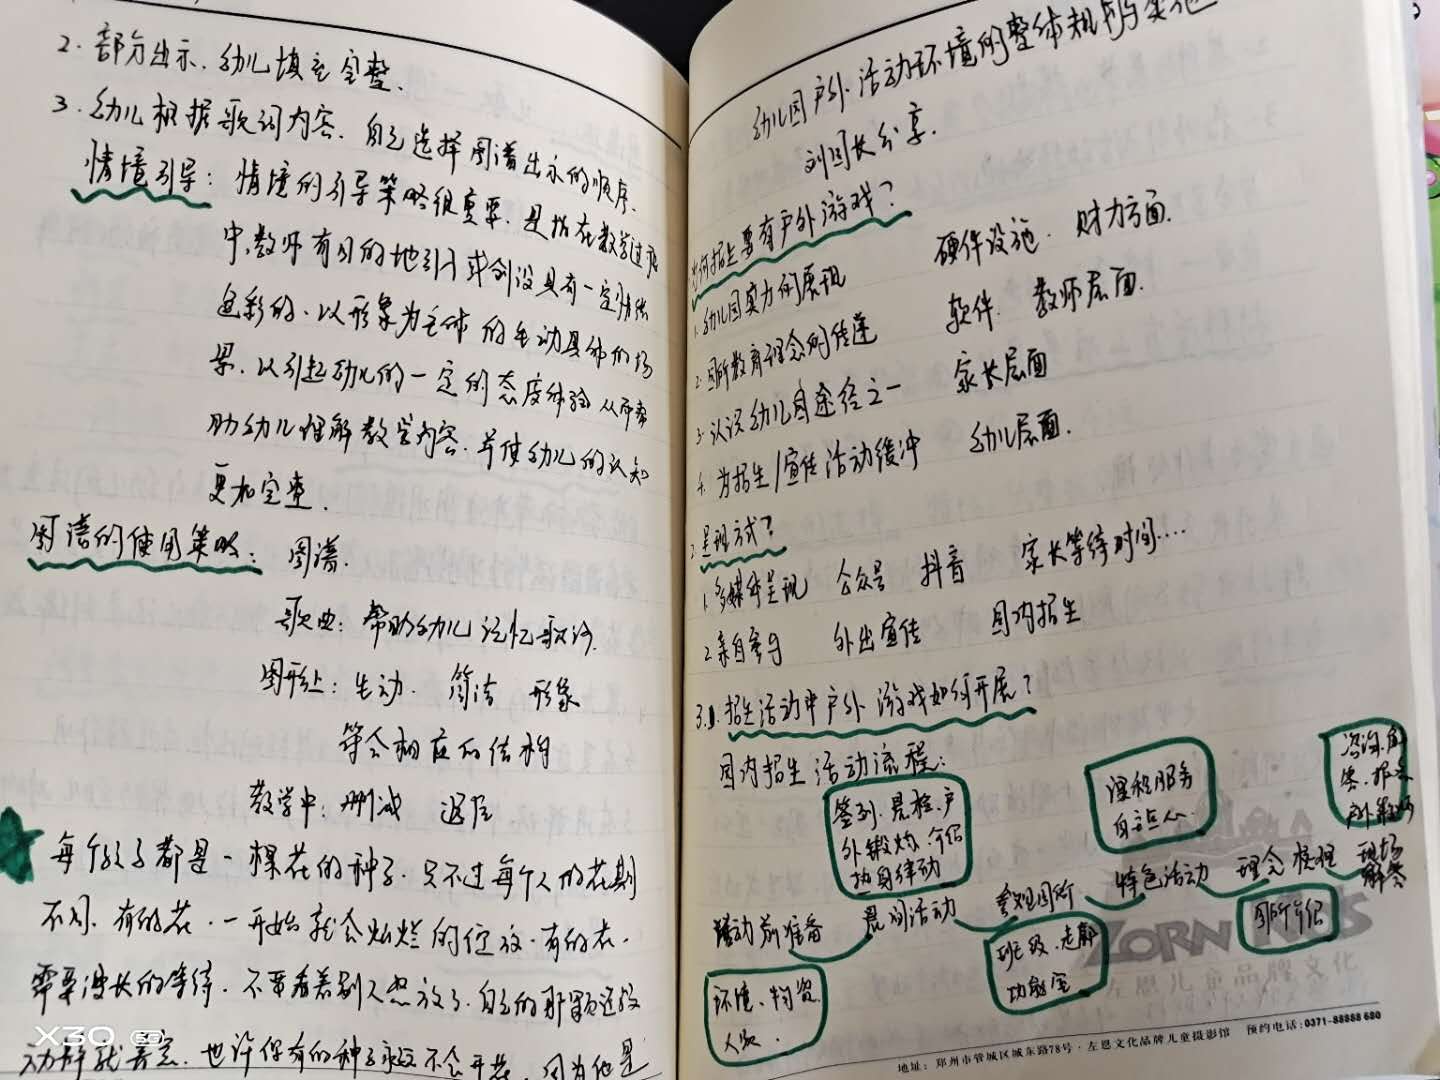 2. 部分出示. 幼儿填充完整.
3. 幼儿根据歌词内容. 自己选择图谱出示的顺序.
情境引导: 情境的引导策略很重要. 是指在教学过程
中, 教师有目的地引入或创设具有一定情绪
色彩的. 以形象为主体的生动具体的场
景. 以引起幼儿的一定的态度体验 从而帮
助幼儿理解教学内容. 并使幼儿的认知
更加完整.
图谱的使用策略: 图谱.
歌曲: 帮助幼儿记忆歌词.
图形上: 生动. 简洁 形象
符合相应的结构
教学中: 删减 退后
每个孩子都是一棵花的种子. 只不过每个人的花期
不同. 有的花. 一开始就会灿烂的绽放. 有的花.
需要漫长的等待. 不要看着别人怒放了. 自己的那颗还没
动静就着急. 也许你有的种子永远不会开花. 因为他是
X30
幼儿园户外活动环境的整体规划与实施
刘园长分享.
为何招生要有户外游戏?
1. 幼儿园实力的展现 硬件设施. 财力方面.
2. 园所教育理念的传递 软件. 教师层面.
3. 认识幼儿园途径之一 家长层面
4. 为招生/宣传活动缓冲 幼儿层面.
2. 呈现方式?
1. 多媒体呈现 公众号 抖音 家长等待时间....
2. 亲自参与 外出宣传 园内招生
3. 招生活动中户外游戏如何开展?
园内招生活动流程:
签到. 晨检. 户
外锻炼. 介绍
热身律动
课程服务
咨询. 解
活动前准备 晨间活动 参观园所 特色活动 理念梳理 现场
解答
环境、物资.
班级. 走廊
功能室
园所介绍
ZORN
左恩儿童品牌文化
地址: 郑州市管城区城东路78号·左恩文化品牌儿童摄影馆 预约电话:0371-88888 680